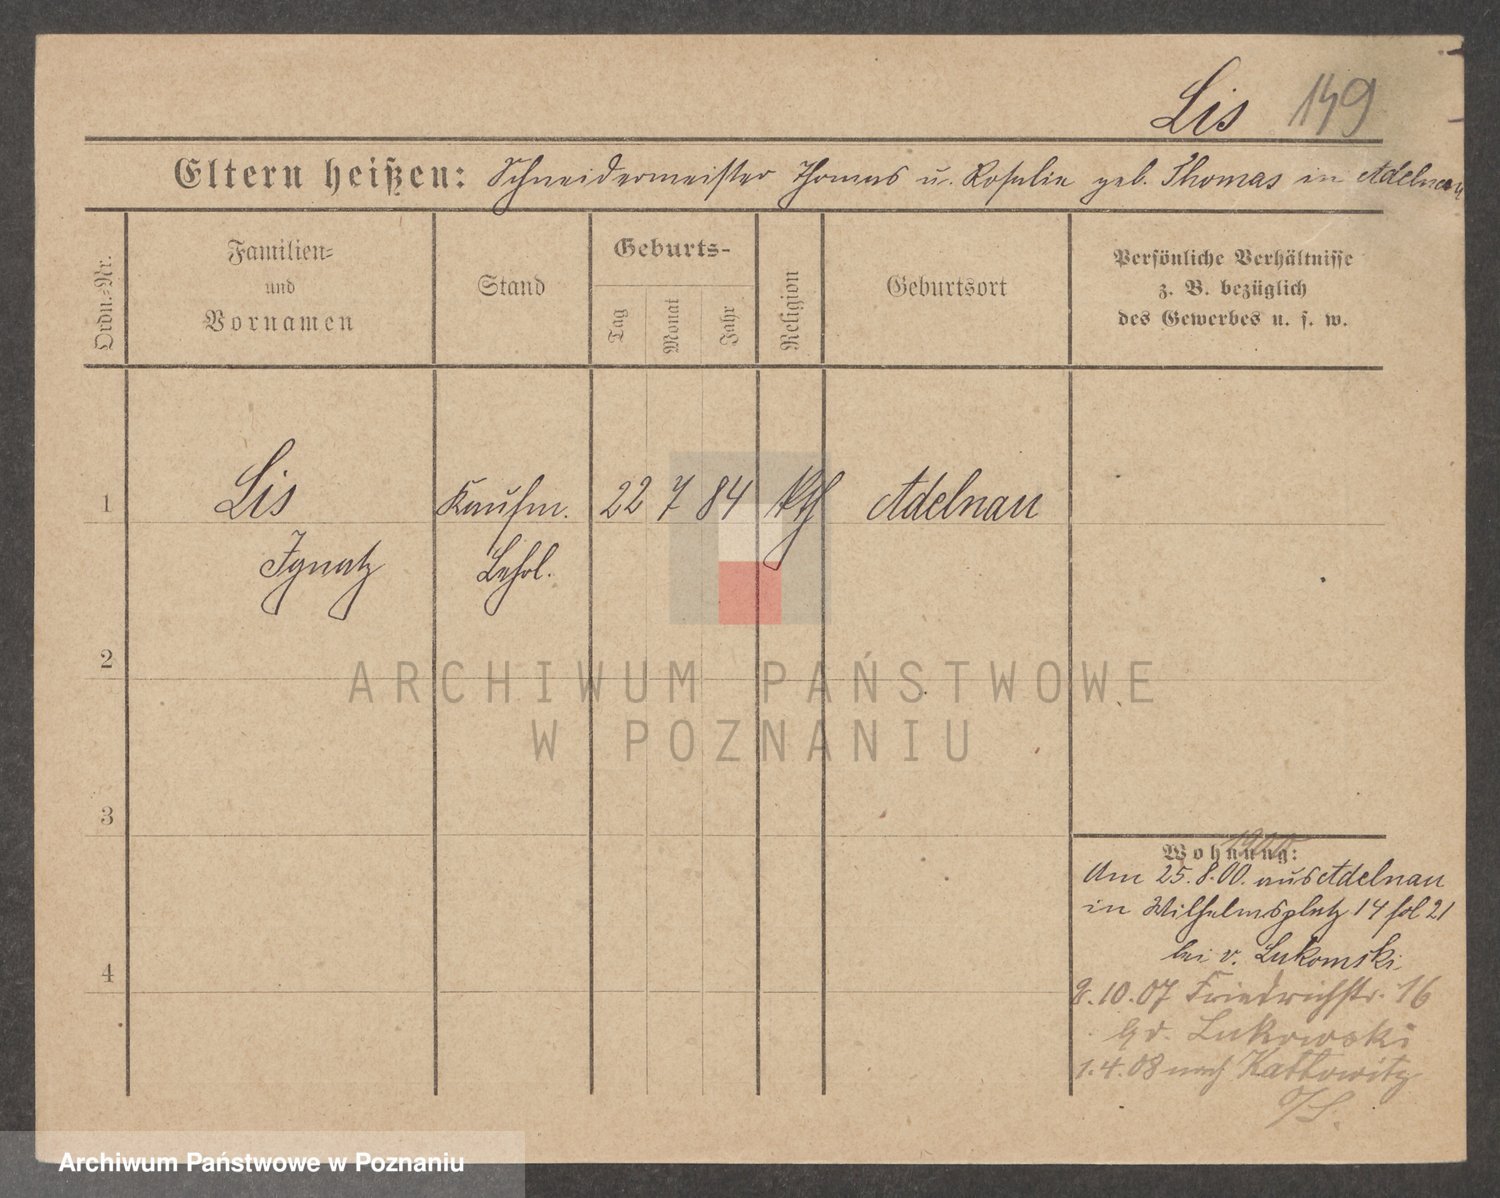 Lis 149
Eltern heißen: Schneidermeister Thomas u. Rosalie geb. Thomas in Adelnau
Ordn.-Nr.
Familien-
und
Vornamen
Stand
Geburts-
Tag
Monat
Jahr
Religion
Geburtsort
Persönliche Verhältnisse
z. B. bezüglich
des Gewerbes u. s. w.
1 Lis Kaufm. 22 7 84 kth Adelnau
Ignatz Lehrl.
2
3
4
Wohnung:
Am 25.8.00. aus Adelnau
in Wilhelmsplatz 14 fol 21
bei v. Lukomski
9.10.07 Friedrichstr. 16
bei Lukowski
1.4.08 nach Kattowitz
ARCHIWUM PAŃSTWOWE
W POZNANIU
Archiwum Państwowe w Poznaniu